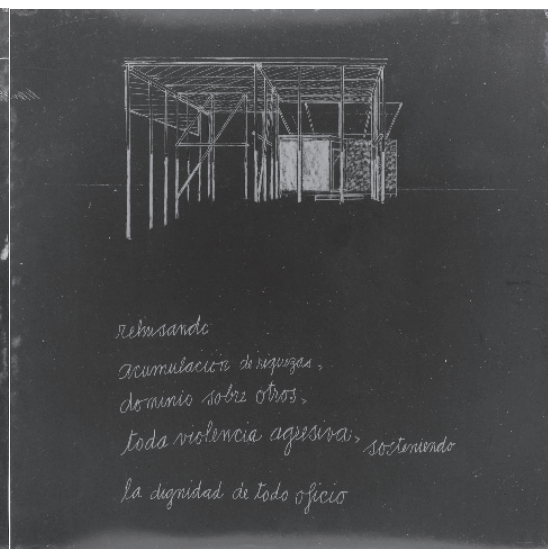 rehusando
acumulación de riquezas,
dominio sobre otros,
toda violencia agresiva, sosteniendo
la dignidad de todo oficio